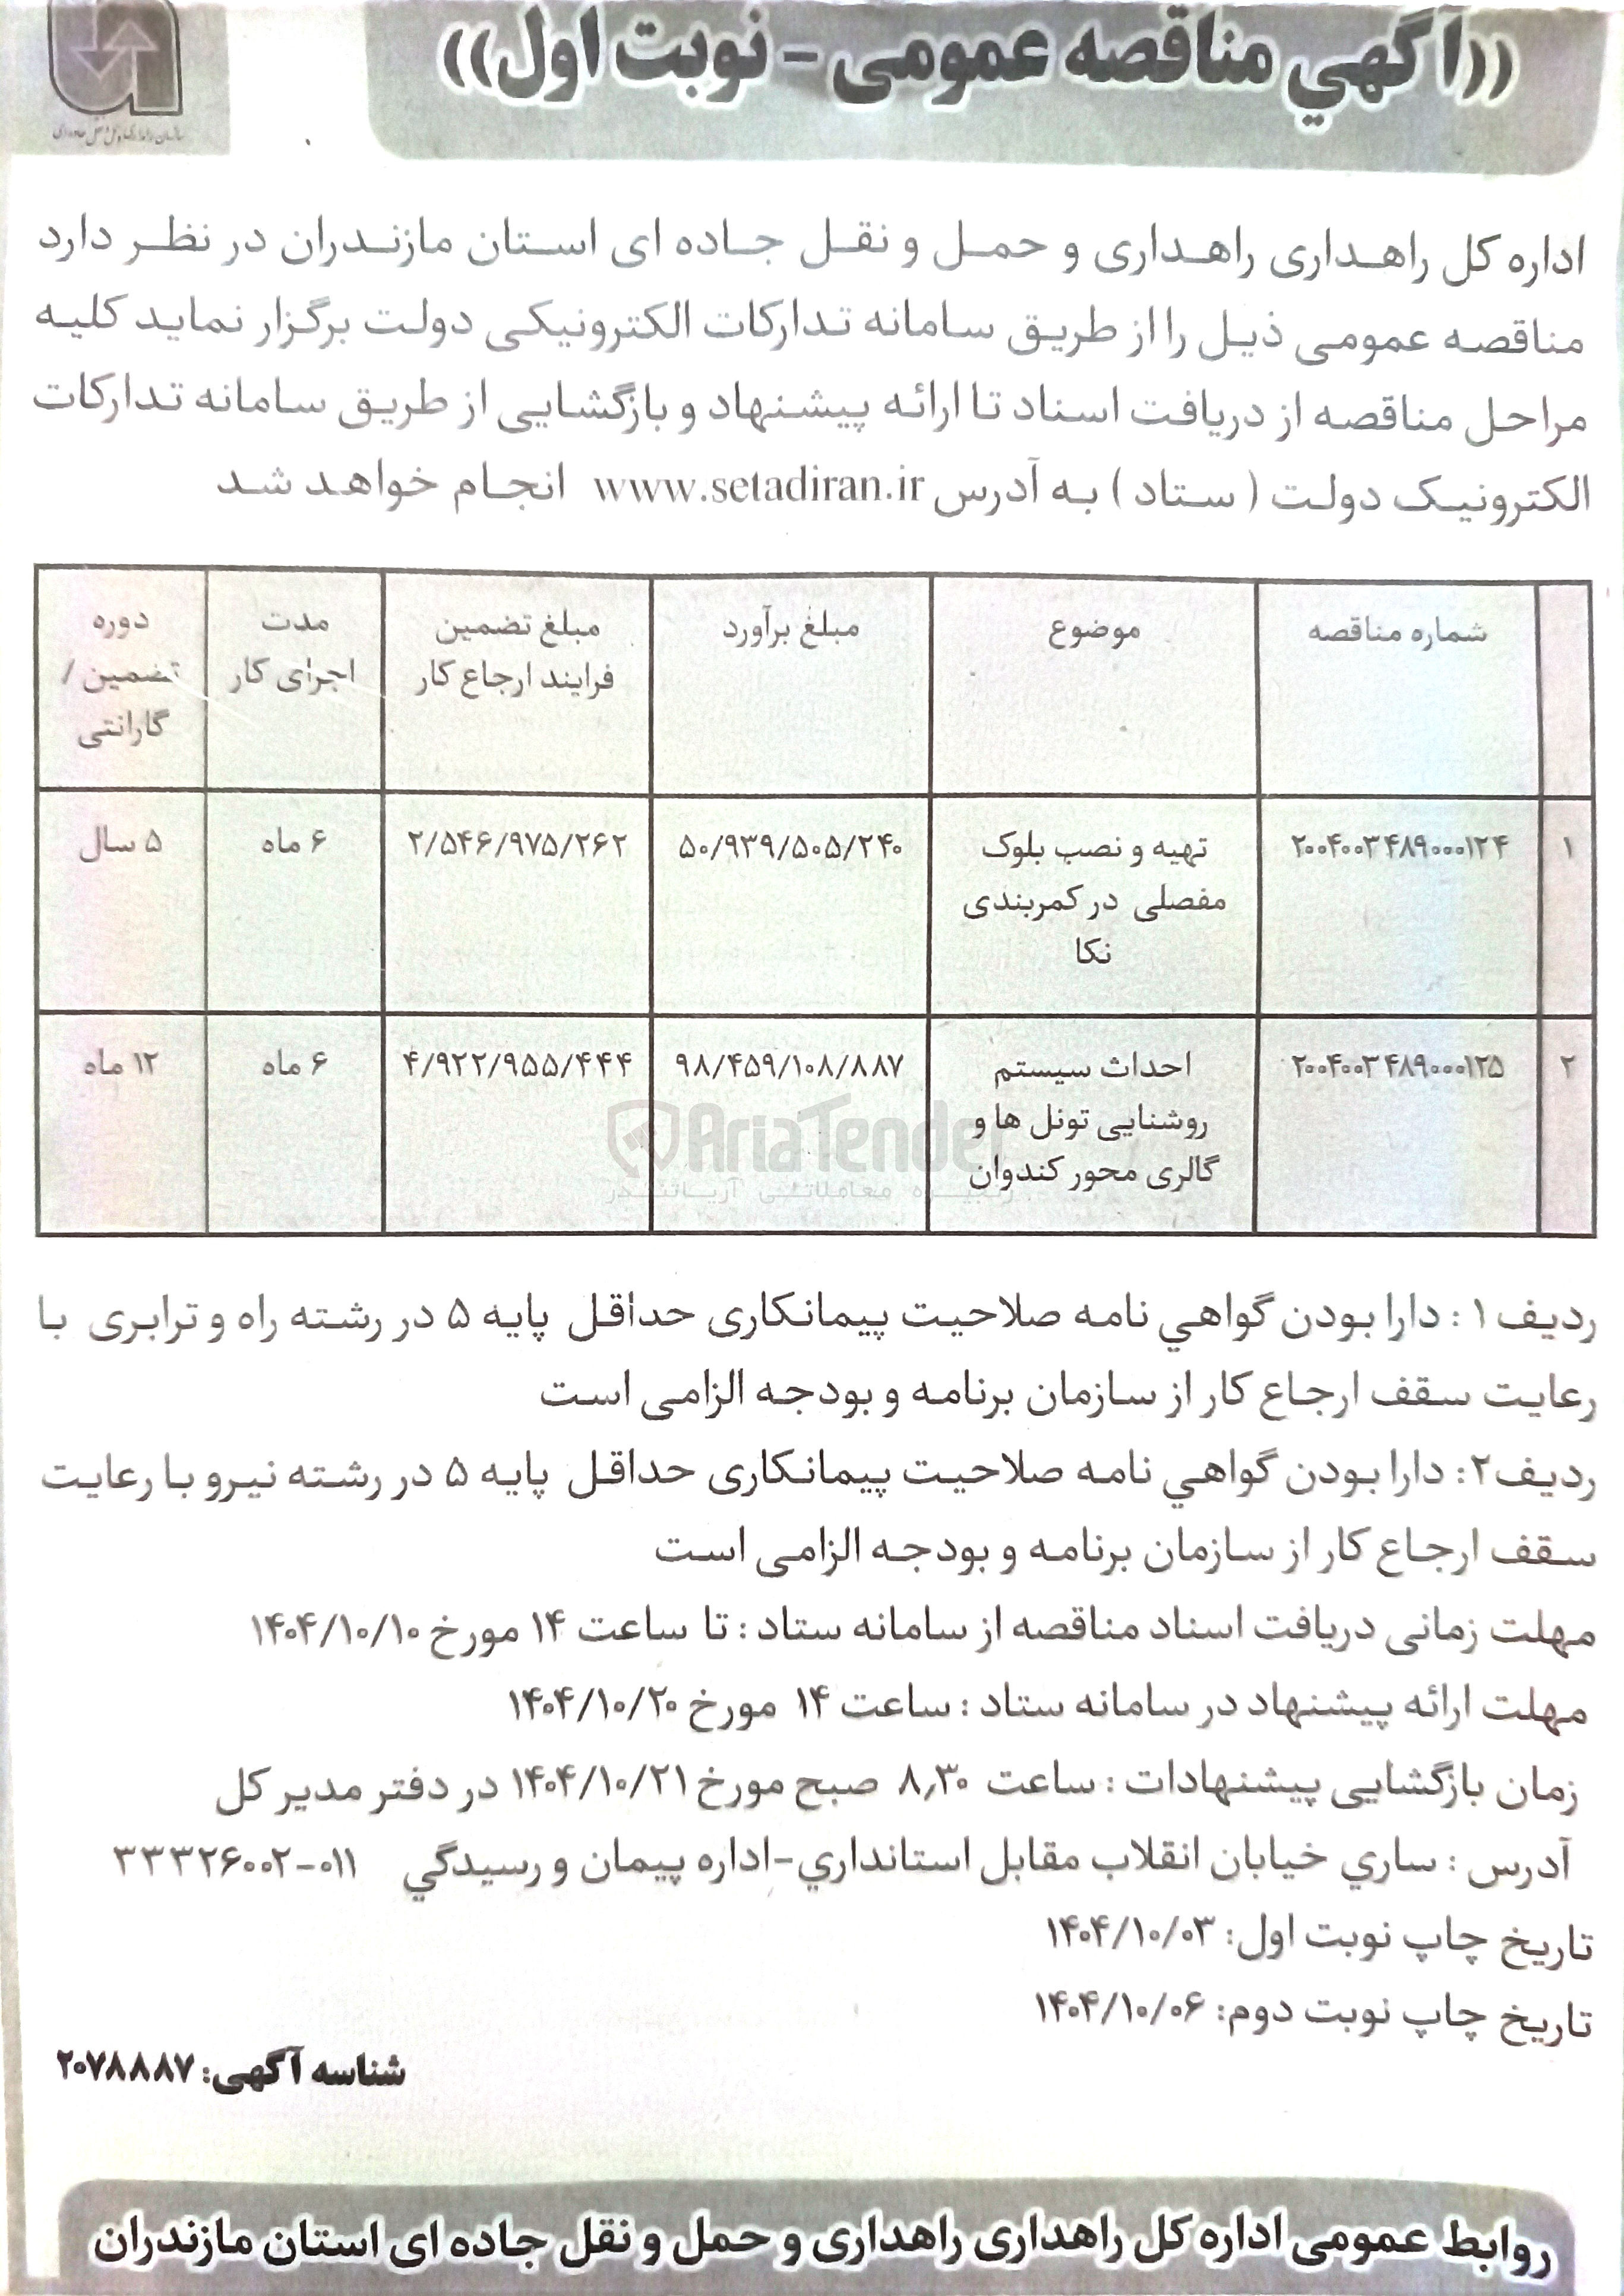 ((آگهي مناقصه عمومی - نوبت اول))
سازمان راهداری و حمل و نقل جاده ای
اداره کل راهداری راهداری و حمل و نقل جاده ای استان مازندران در نظر دارد
مناقصه عمومی ذیل را از طریق سامانه تدارکات الکترونیکی دولت برگزار نماید کلیه
مراحل مناقصه از دریافت اسناد تا ارائه پیشنهاد و بازگشایی از طریق سامانه تدارکات
الکترونیک دولت ( ستاد ) به آدرس www.setadiran.ir انجام خواهد شد
شماره مناقصه موضوع مبلغ برآورد مبلغ تضمین فرایند ارجاع کار مدت اجرای کار دوره تضمین / گارانتی
۱ ۲۰۰۴۰۰۳۴۸۹۰۰۰۱۲۴ تهیه و نصب بلوک مفصلی در کمربندی نکا ۵۰/۹۳۹/۵۰۵/۲۴۰ ۲/۵۴۶/۹۷۵/۲۶۲ ۶ ماه ۵ سال
۲ ۲۰۰۴۰۰۳۴۸۹۰۰۰۱۲۵ احداث سیستم روشنایی تونل ها و گالری محور کندوان ۹۸/۴۵۹/۱۰۸/۸۸۷ ۴/۹۲۲/۹۵۵/۴۴۴ ۶ ماه ۱۲ ماه
AriaTender
معاملاتی آریاتندر
ردیف ۱ : دارا بودن گواهي نامه صلاحیت پیمانکاری حداقل پایه ۵ در رشته راه و ترابری با
رعایت سقف ارجاع کار از سازمان برنامه و بودجه الزامی است
ردیف۲: دارا بودن گواهي نامه صلاحیت پیمانکاری حداقل پایه ۵ در رشته نیرو با رعایت
سقف ارجاع کار از سازمان برنامه و بودجه الزامی است
مهلت زمانی دریافت اسناد مناقصه از سامانه ستاد : تا ساعت ۱۴ مورخ ۱۴۰۴/۱۰/۱۰
مهلت ارائه پیشنهاد در سامانه ستاد : ساعت ۱۴ مورخ ۱۴۰۴/۱۰/۲۰
زمان بازگشایی پیشنهادات : ساعت ۸,۳۰ صبح مورخ ۱۴۰۴/۱۰/۲۱ در دفتر مدیر کل
آدرس : ساري خیابان انقلاب مقابل استانداري-اداره پیمان و رسیدگي ۰۱۱-۳۳۳۲۶۰۰۲
تاریخ چاپ نوبت اول: ۱۴۰۴/۱۰/۰۳
تاریخ چاپ نوبت دوم: ۱۴۰۴/۱۰/۰۶
شناسه آگهی: ۲۰۷۸۸۸۷
روابط عمومی اداره کل راهداری راهداری و حمل و نقل جاده ای استان مازندران